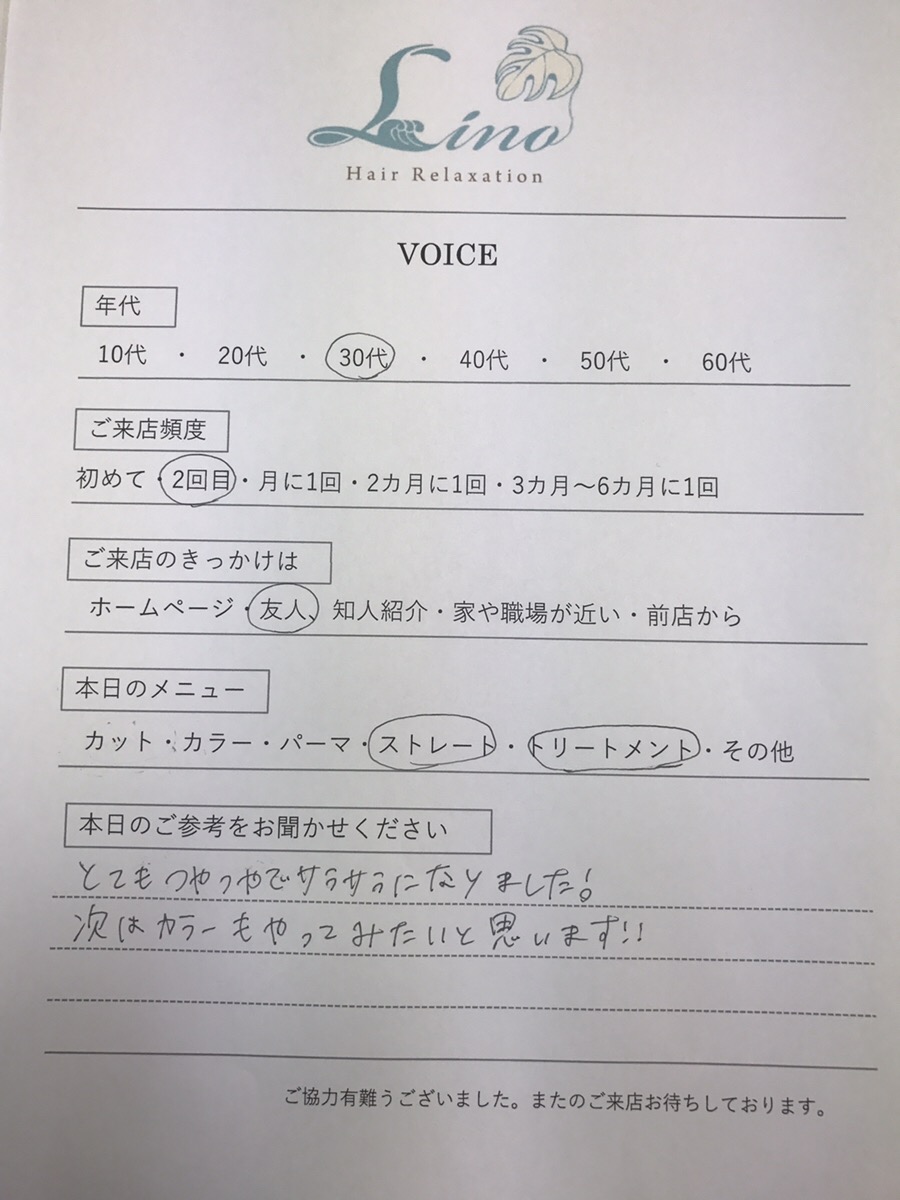 Lino
Hair Relaxation
VOICE
年代
10代 ・ 20代 ・ 30代 ・ 40代 ・ 50代 ・ 60代
ご来店頻度
初めて・2回目・月に1回・2カ月に1回・3カ月～6カ月に1回
ご来店のきっかけは
ホームページ・友人、知人紹介・家や職場が近い・前店から
本日のメニュー
カット・カラー・パーマ・ストレート・トリートメント・その他
本日のご参考をお聞かせください
とてもつやつやでサラサラになりました!
次はカラーもやってみたいと思います!!
ご協力有難うございました。またのご来店お待ちしております。